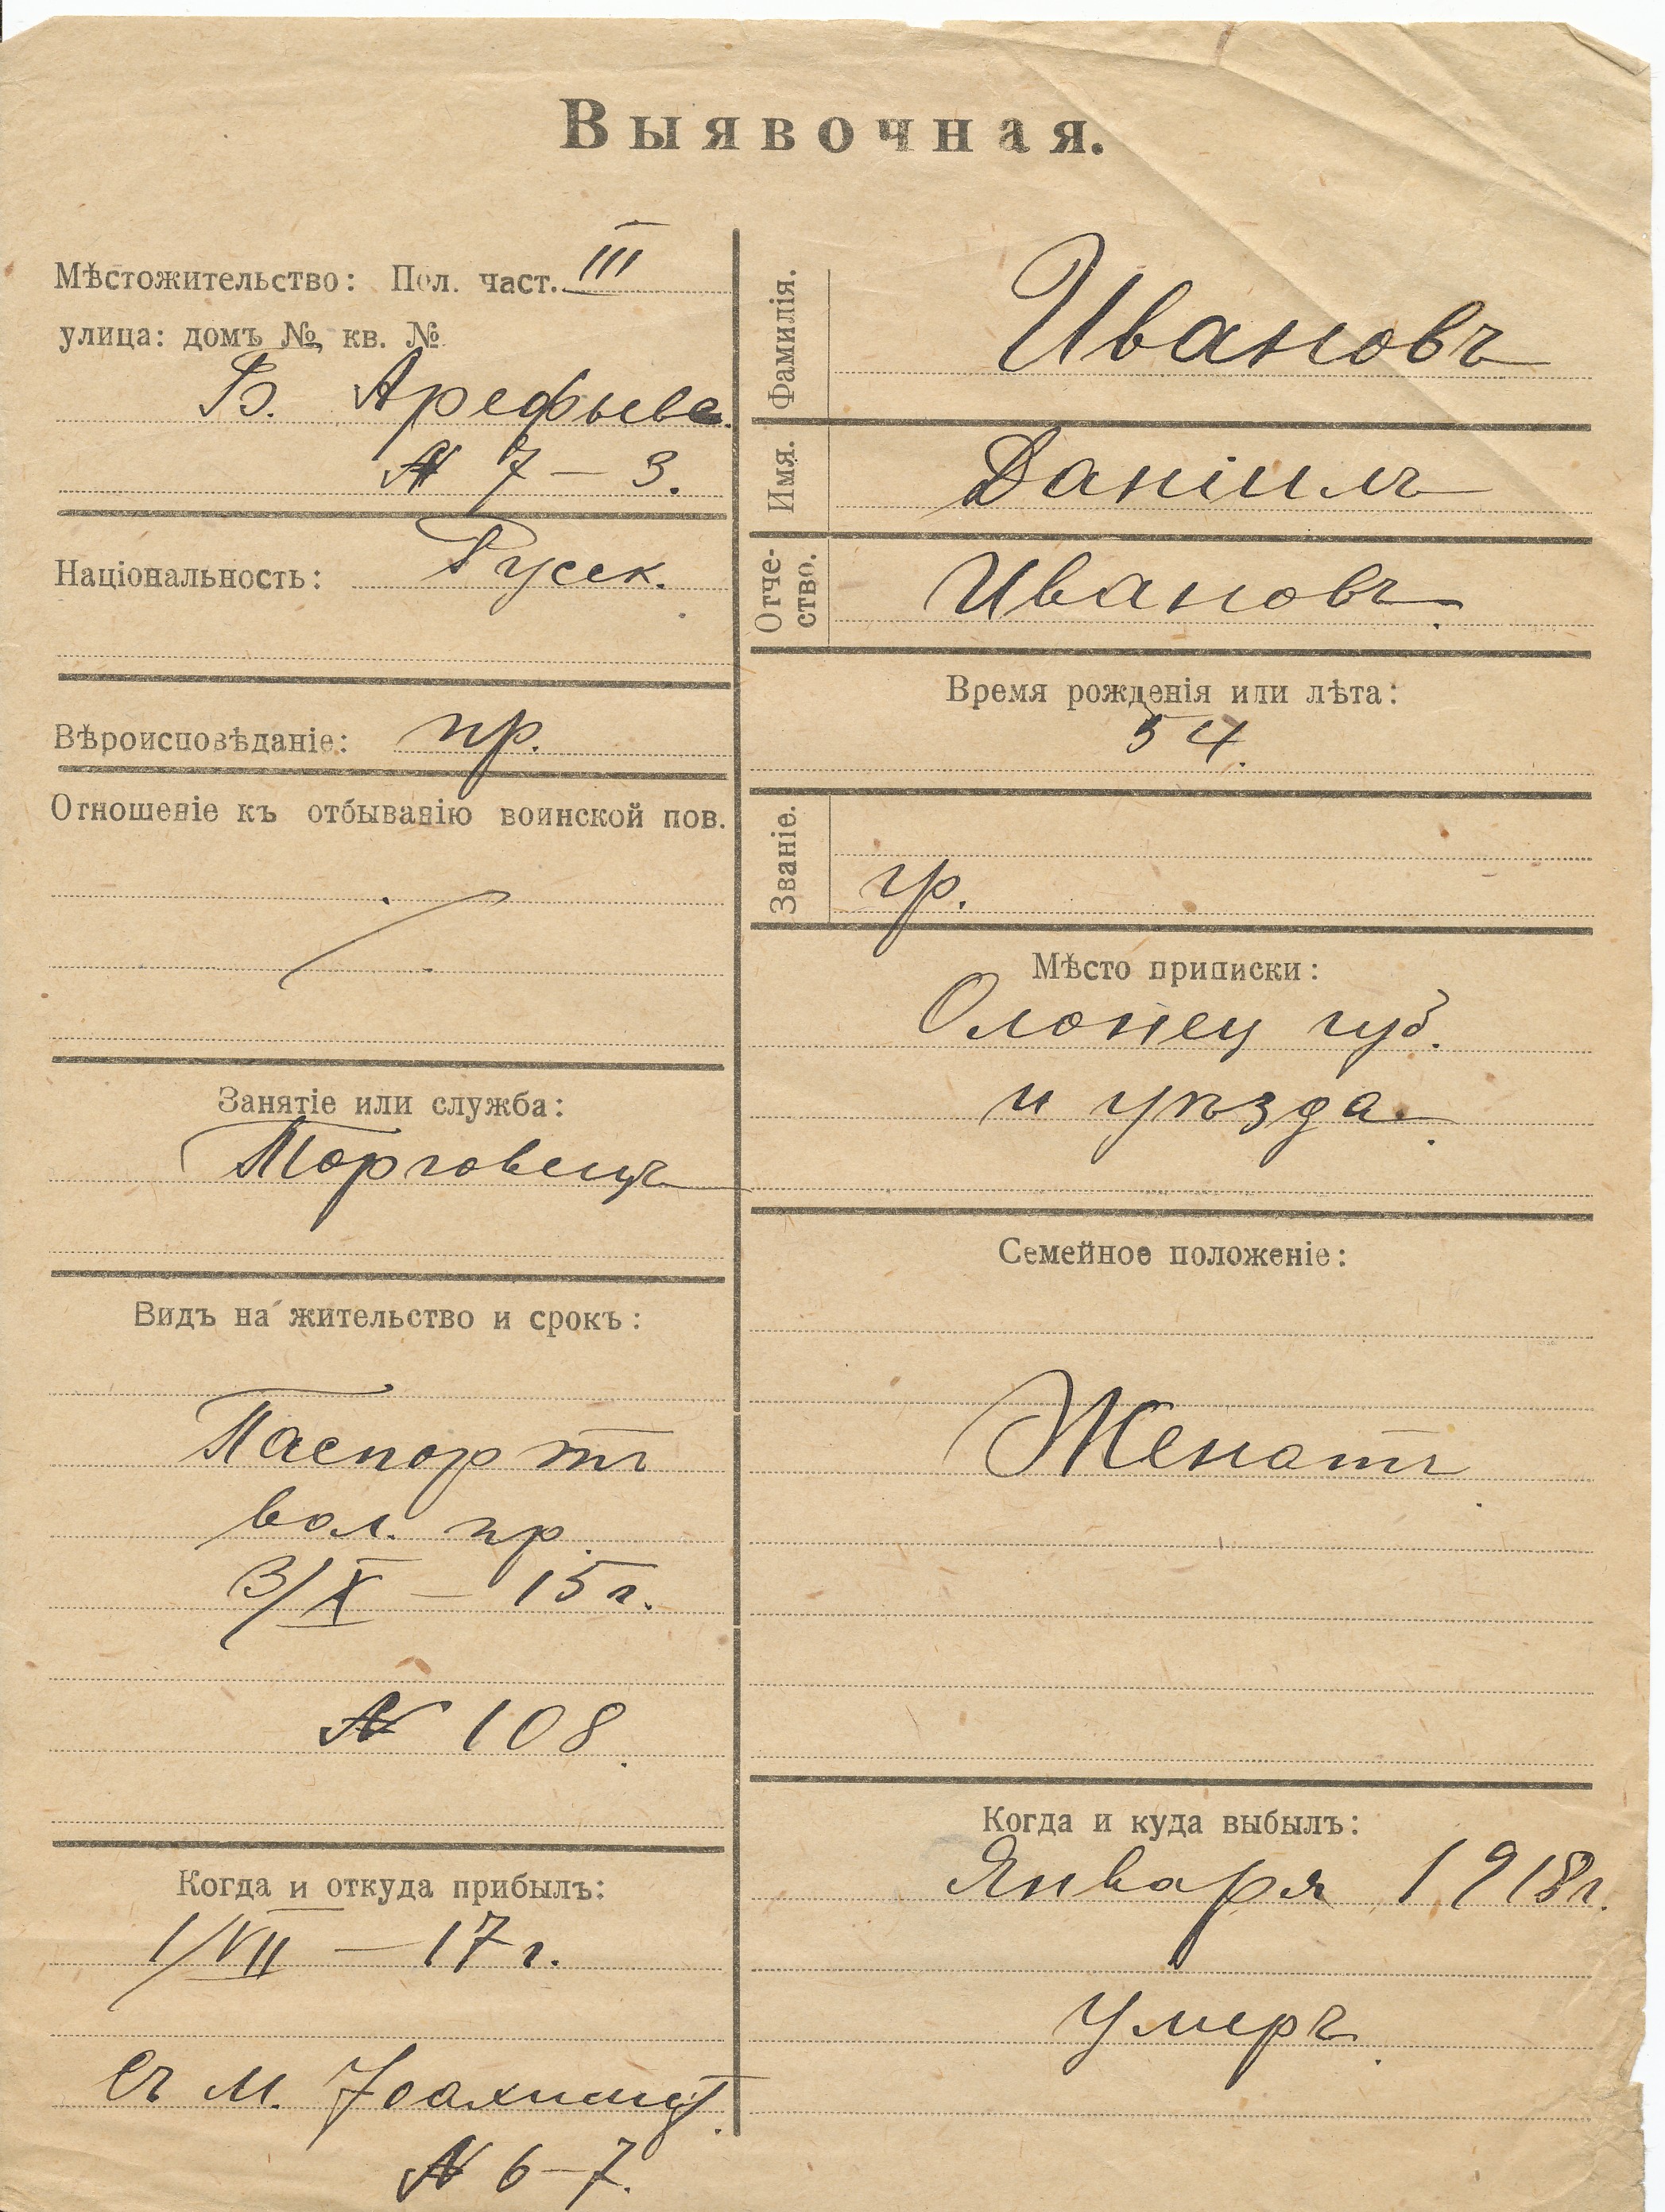 Выявочная.
Мѣстожительство: Пол. част. III
улица: домъ №, кв. №
Б. Арефьевс.
№ 7 – 3.
Національность: Русск.
Вѣроисповѣданіе: пр.
Отношеніе къ отбыванію воинской пов.
Занятіе или служба:
Торговецъ
Видъ на жительство и срокъ:
Паспортъ
вол. пр.
3/X – 15 г.
№ 108.
Когда и откуда прибылъ:
1/VII – 17 г.
съ м.
№ 6–7.
Фамилія. Ивановъ
Имя. Даніилъ
Отче-
ство. Ивановъ.
Время рожденія или лѣта:
54.
Званіе. гр.
Мѣсто приписки:
Олонец губ.
и уѣзда.
Семейное положеніе:
Женатъ.
Когда и куда выбылъ:
Января 1918 г.
умеръ.